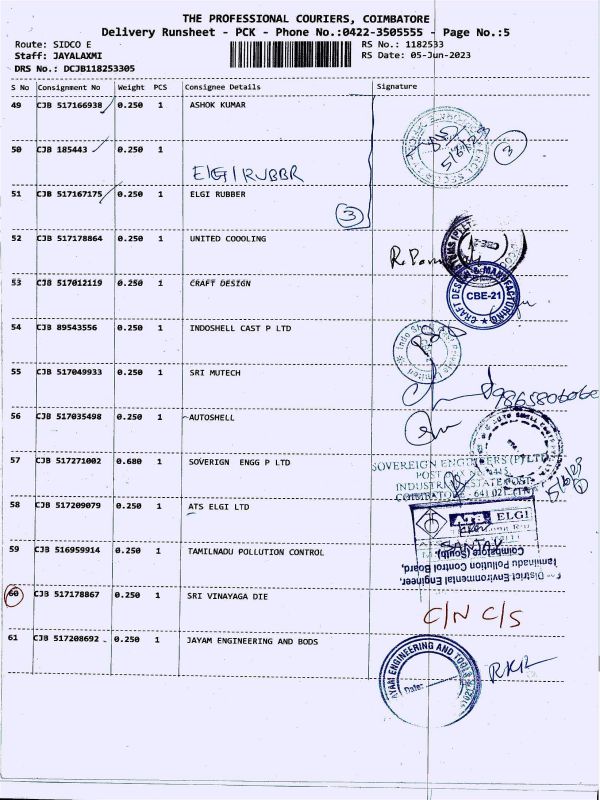 THE PROFESSIONAL COURIERS, COIMBATORE
Delivery Runsheet - PCK - Phone No.:0422-3505555 - Page No.:5
Route: SIDCO E RS No.: 1182533
Staff: JAYALAXMI RS Date: 05-Jun-2023
DRS No.: DCJB118253305
S No Consignment No Weight PCS Consignee Details Signature
49 CJB 517166938 0.250 1 ASHOK KUMAR
5/6/23
3
50 CJB 185443 0.250 1
ELGI RUBBR
51 CJB 517167175 0.250 1 ELGI RUBBER
3
52 CJB 517178864 0.250 1 UNITED COOOLING
53 CJB 517012119 0.250 1 CRAFT DESIGN
CRAFT DESIGN & MANUFACTURING
CBE-21
54 CJB 89543556 0.250 1 INDOSHELL CAST P LTD
55 CJB 517049933 0.250 1 SRI MUTECH
56 CJB 517035498 0.250 1 AUTOSHELL
57 CJB 517271002 0.680 1 SOVERIGN ENGG P LTD
SOVEREIGN ENGINEERS (P) LTD
INDUSTRIAL ESTATE POST
COIMBATORE - 641 021. (TN)
5/6/23
1
58 CJB 517209079 0.250 1 ATS ELGI LTD
ATS ELGI
SANJAY
59 CJB 516959914 0.250 1 TAMILNADU POLLUTION CONTROL
District Environmental Engineer,
Tamilnadu Pollution Control Board,
Coimbatore (South).
60 CJB 517178867 0.250 1 SRI VINAYAGA DIE
C/N C/S
61 CJB 517208692 0.250 1 JAYAM ENGINEERING AND BODS
JAYAM ENGINEERING AND TOOLS
Date: